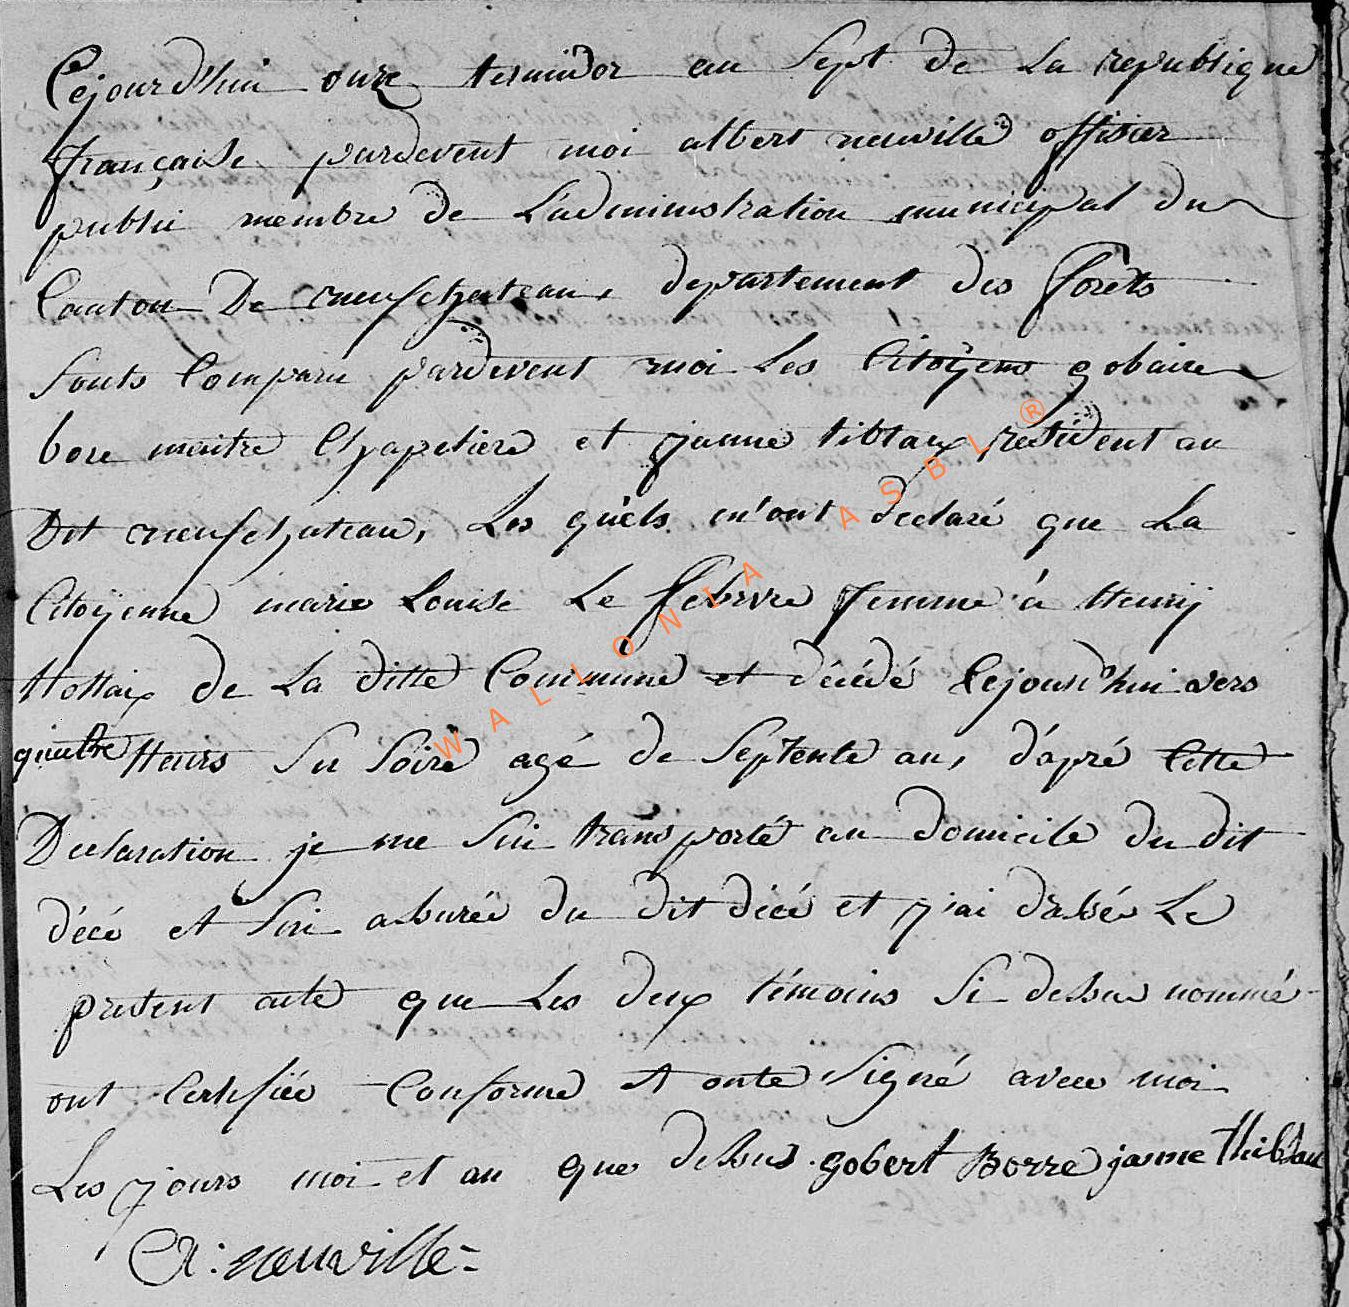 Cejourd'hui onze termidor an Sept de La republique
française pardevent moi albert neuville offisier
public membre de L'adminnistration municipal du
Canton De neufchateau, departement des forêts
Sonts Comparu pardevent moi Les Citoÿens gobaire
bore maitre Chapeliere et jeanne tiblaux residdent au
Dit neufchateau, Les quels m'ont declaré que La
Citoÿenne marie Louise Le febvre femme à Henrij
Hottaix de La ditte Commune et décédé Cejourd'hui vers
quattre Heurs Su Soire agé de Septente an, d'apré Cette
Declaration je me Sui transporté au domicile du dit
décé et Sui assurée du dit décé et j'ai drassé Le
present acte que Les deux témoins Si dessus nommé
ont Certifiée Conforme et onte Signé avece moi
Les jours moi et an que dessus. gobert Borre janne thiblau
A: neuville =
WALLONIA ASBL ®